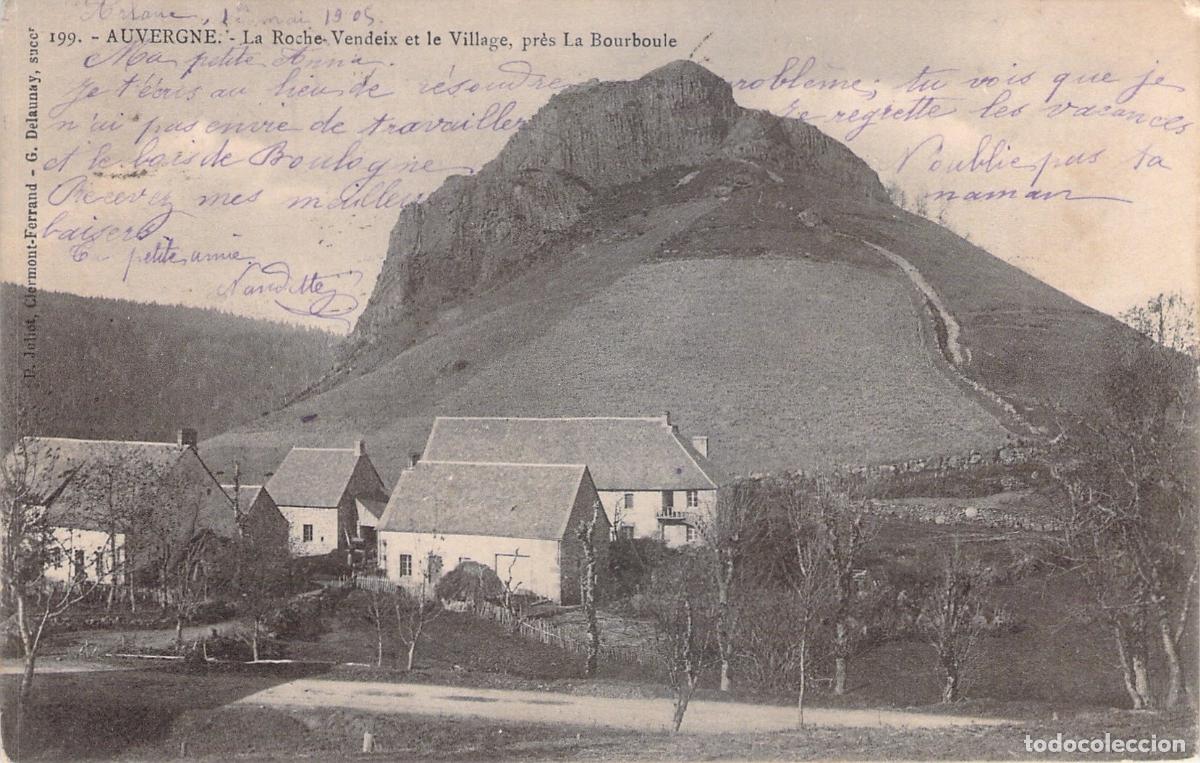 1er mai 1905
199. - AUVERGNE. - La Roche-Vendeix et le Village, près La Bourboule
Ma petite Anna.
Je t'écris au lieu de résoudre problème, tu vois que je
n'ai pas envie de travailler Je regrette les vacances
et le bois de Boulogne N'oublie pas ta
Recevez mes meilleurs maman
baisers
Ta petite amie
Nandette
P. Juliot, Clermont-Ferrand - G. Delaunay, succr
todocoleccion